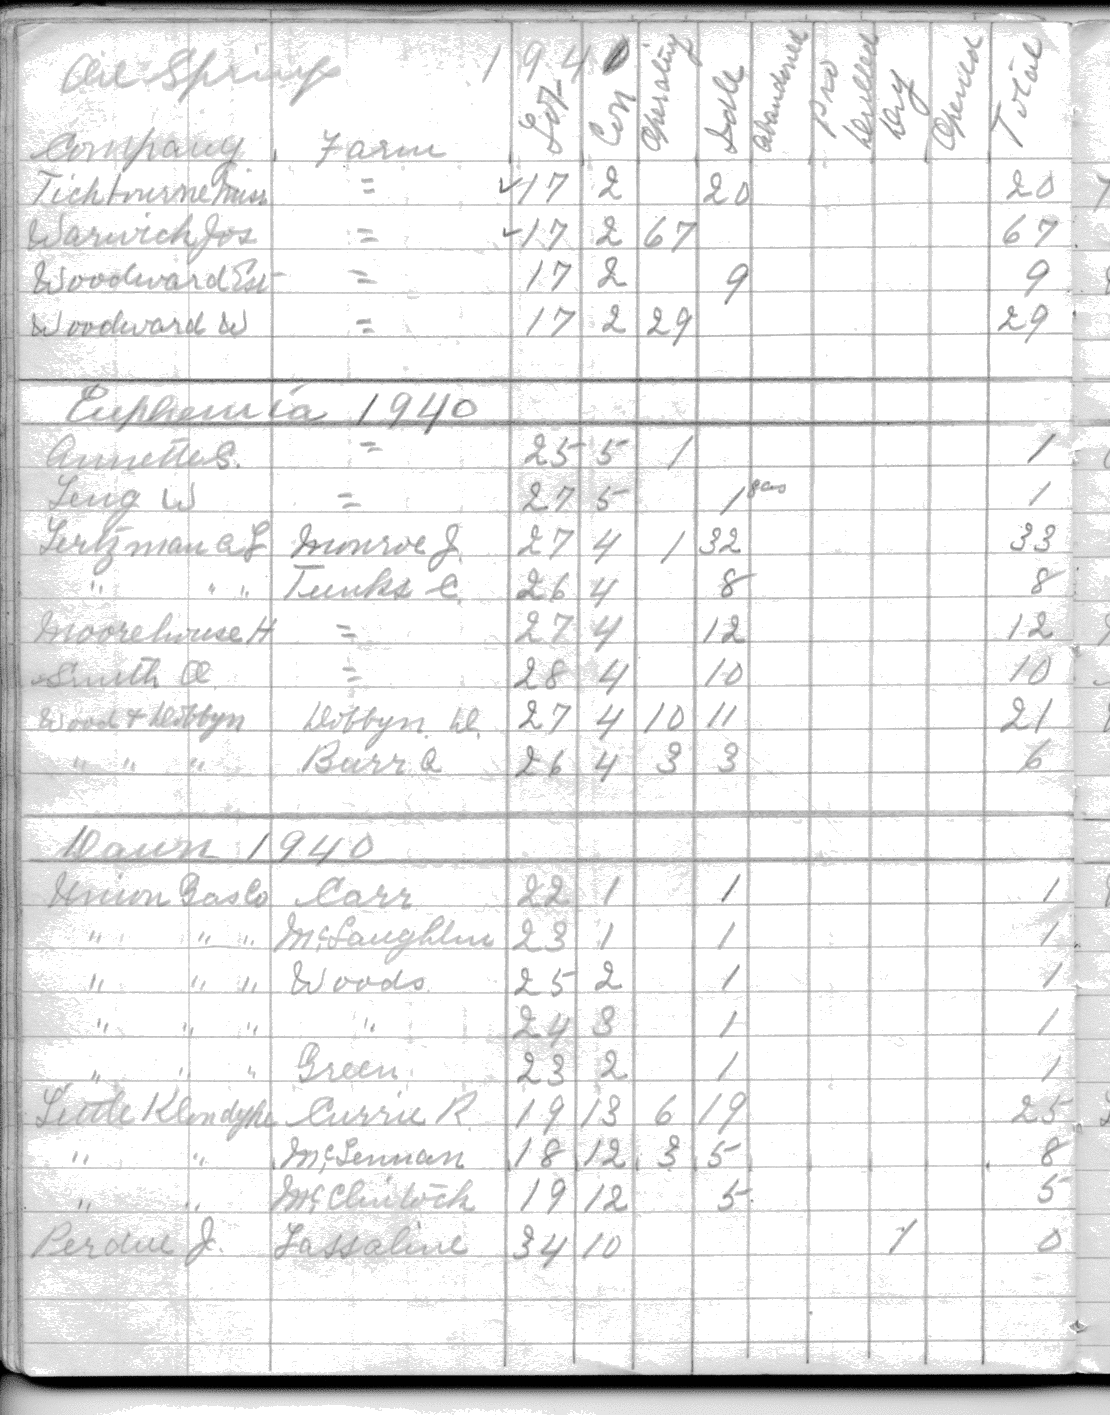 Oil Springs 1940
Company Farm Lot Con Operating Idle Abandoned Pro Drilled Dry Opened Total
Tichbourne Miss = ✓17 2 20 20
Warwick Jos = ✓17 2 67 67
Woodward Est = 17 2 9 9
Woodward W = 17 2 29 29
Euphemia 1940
Annett S. = 25 5 1 1
Leng W = 27 5 1 gas 1
Lertzman A L Monroe J. 27 4 1 32 33
" " " Tunks C. 26 4 8 8
Moorehouse H = 27 4 12 12
Smith A = 28 4 10 10
Wood & Dobbyn Dobbyn D. 27 4 10 11 21
" " " Burr A 26 4 3 3 6
Dawn 1940
Union Gas Co Carr 22 1 1 1
" " " McLaughlin 23 1 1 1
" " " Woods 25 2 1 1
" " " " 24 3 1 1
" " " Green 23 2 1 1
Little Klondyke Currie R. 19 13 6 19 25
" " McLennan 18 12 3 5 8
" " McClintock 19 12 5 5
Perdue J. Lassaline 34 10 1 0